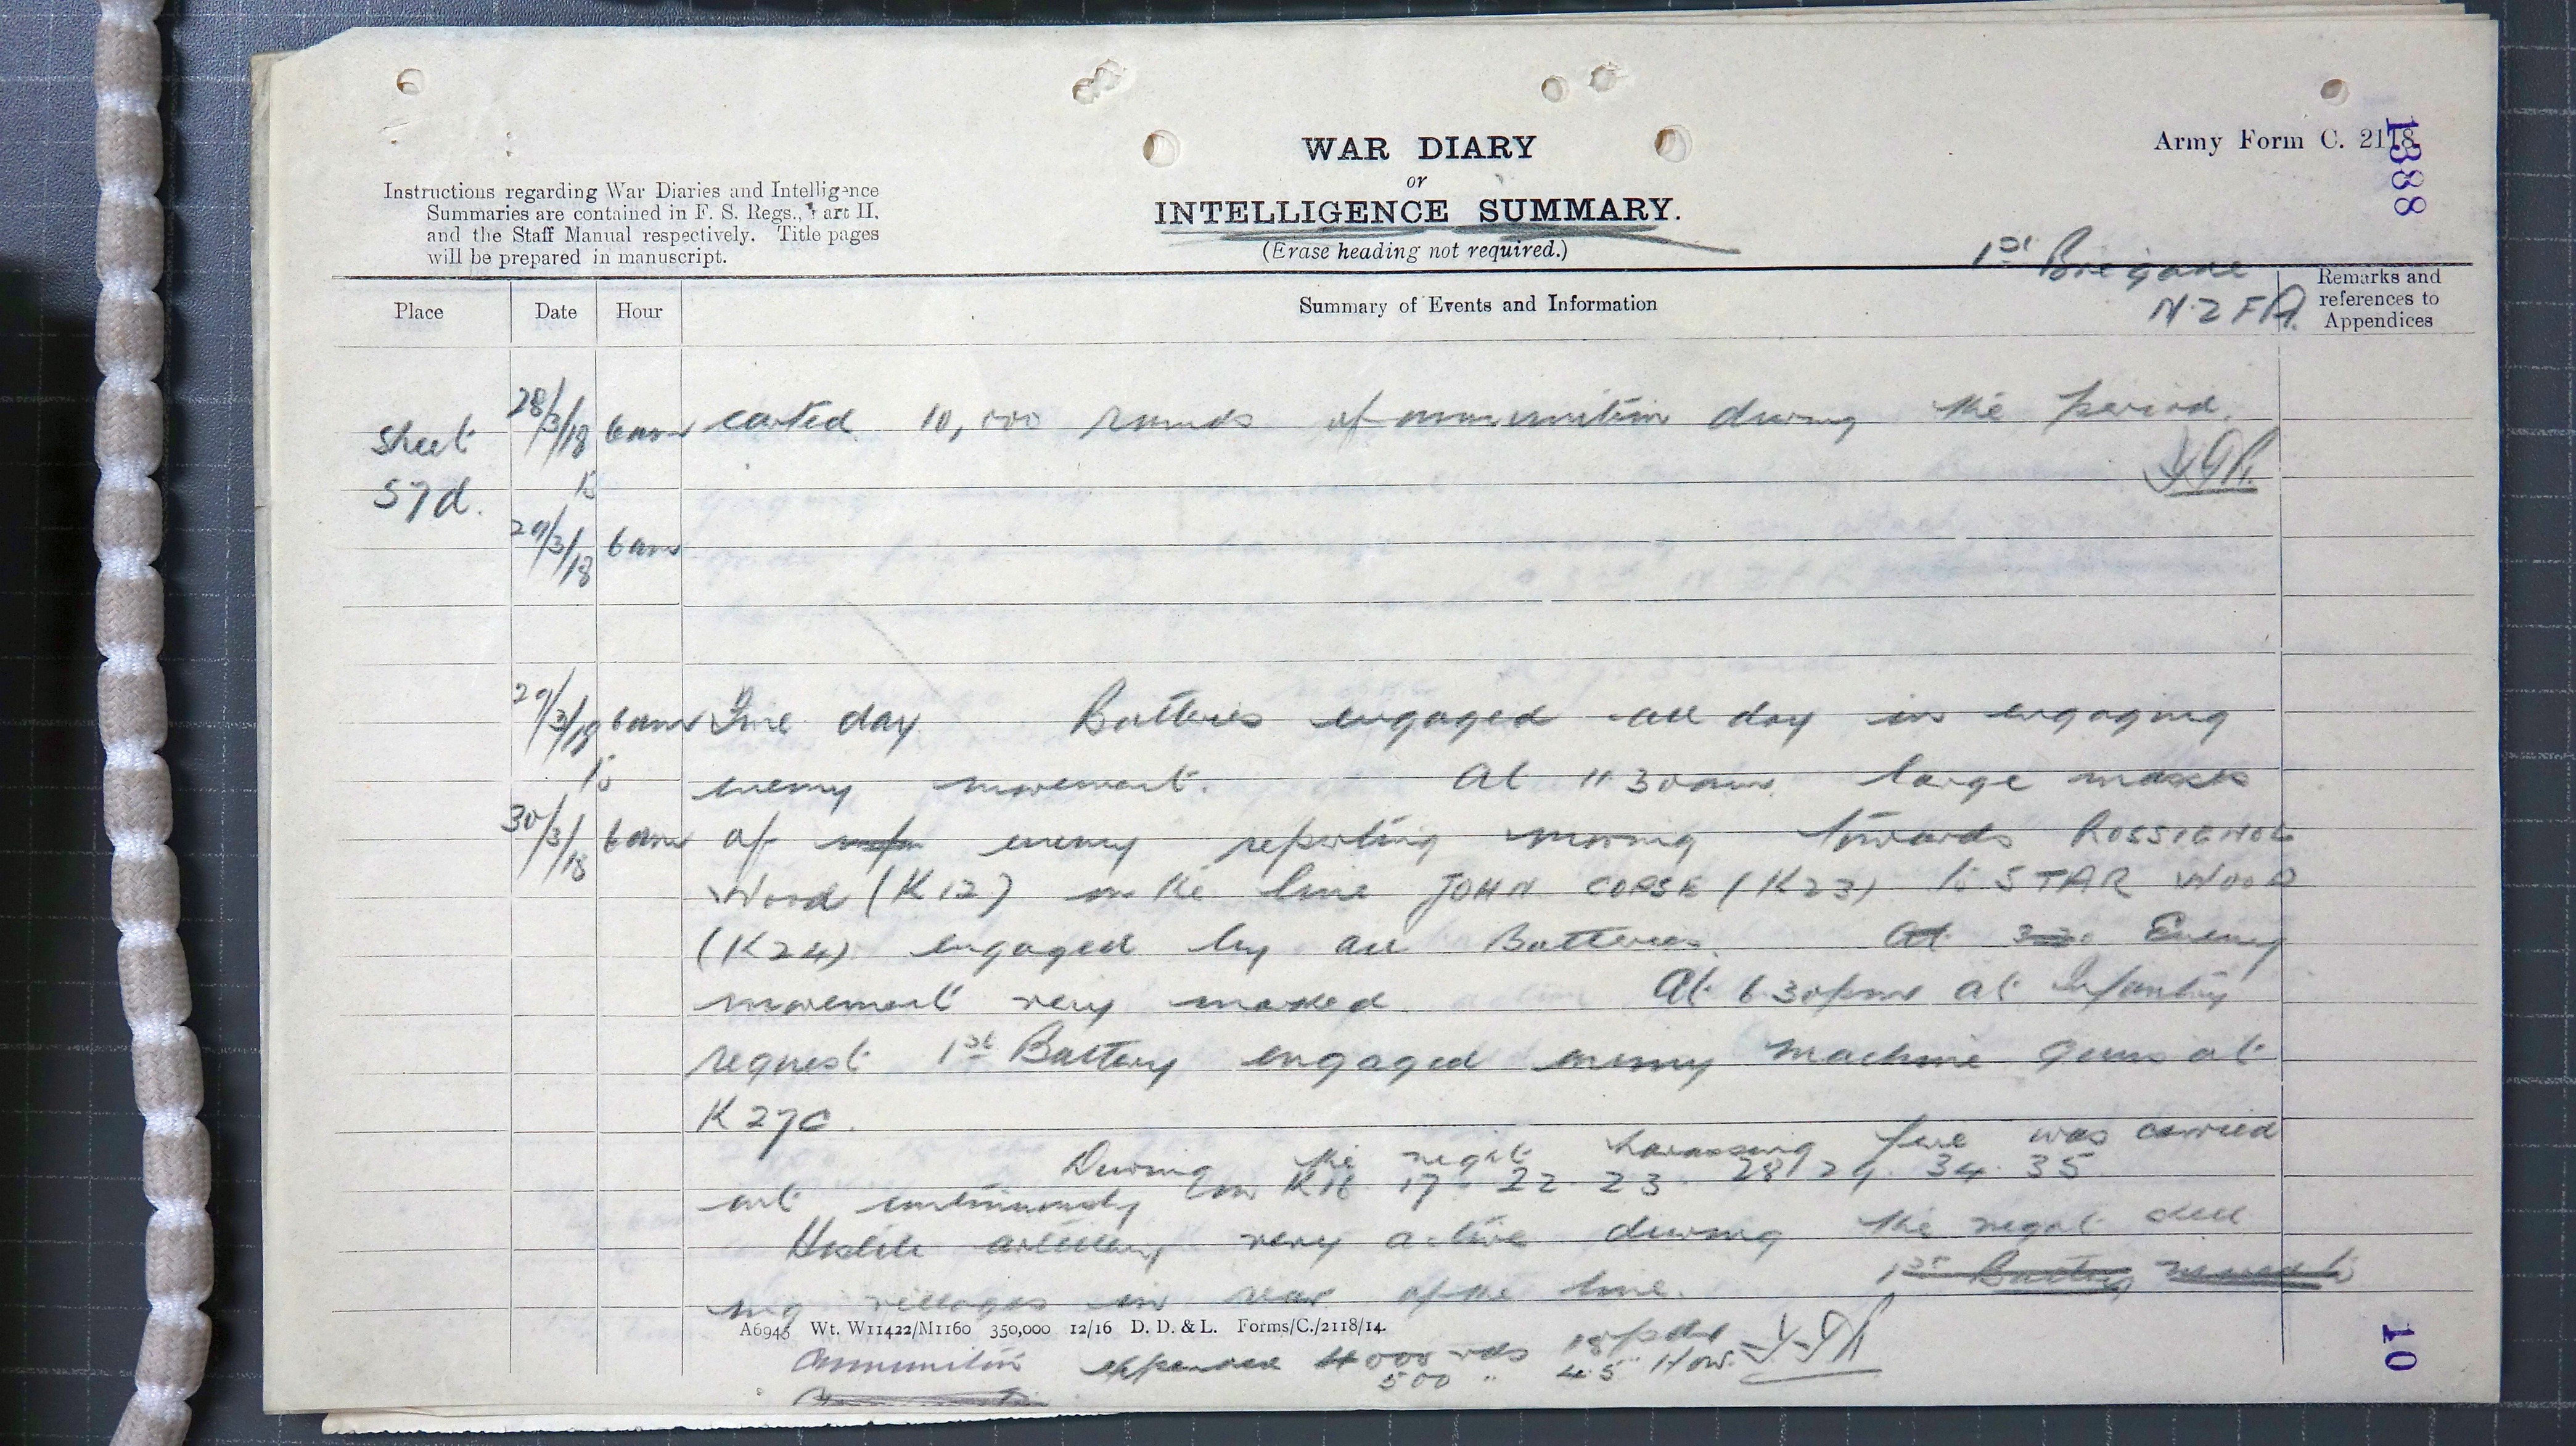 WAR DIARY
or
INTELLIGENCE SUMMARY.
(Erase heading not required.)
Army Form C. 2118.
1388
Instructions regarding War Diaries and Intelligence
Summaries are contained in F. S. Regs., Part II.
and the Staff Manual respectively. Title pages
will be prepared in manuscript.
1st Brigade
N.Z.F.A.
Place Date Hour Summary of Events and Information Remarks and references to Appendices
Sheet 57d. 28/3/18 6am carted 10,000 rounds of ammunition during the period.
to
29/3/18 6am
29/3/18 6am Fine day Batteries engaged all day in engaging
to enemy movement. At 11.30am large masses
30/3/18 6am of enemy reporting moving towards ROSSIGNOL
Wood (K12) on the line JOHN COPSE (K23) to STAR WOOD
(K24) engaged by all Batteries. At 3.30 Enemy
movement very marked. At 6.30pm at Infantry
request 1st Battery engaged enemy machine guns at
K27c.
During the night harassing fire was carried
out continuously on K16 17 22 23 28 29 34 35
Hostile artillery very active during the night shell
ing villages in rear of the line. 1st Battery
A6945 Wt. W11422/M1160 350,000 12/16 D. D. & L. Forms/C./2118/14.
Ammunition expended 4000 rds 18 pdr
500 " 4.5" How.
10